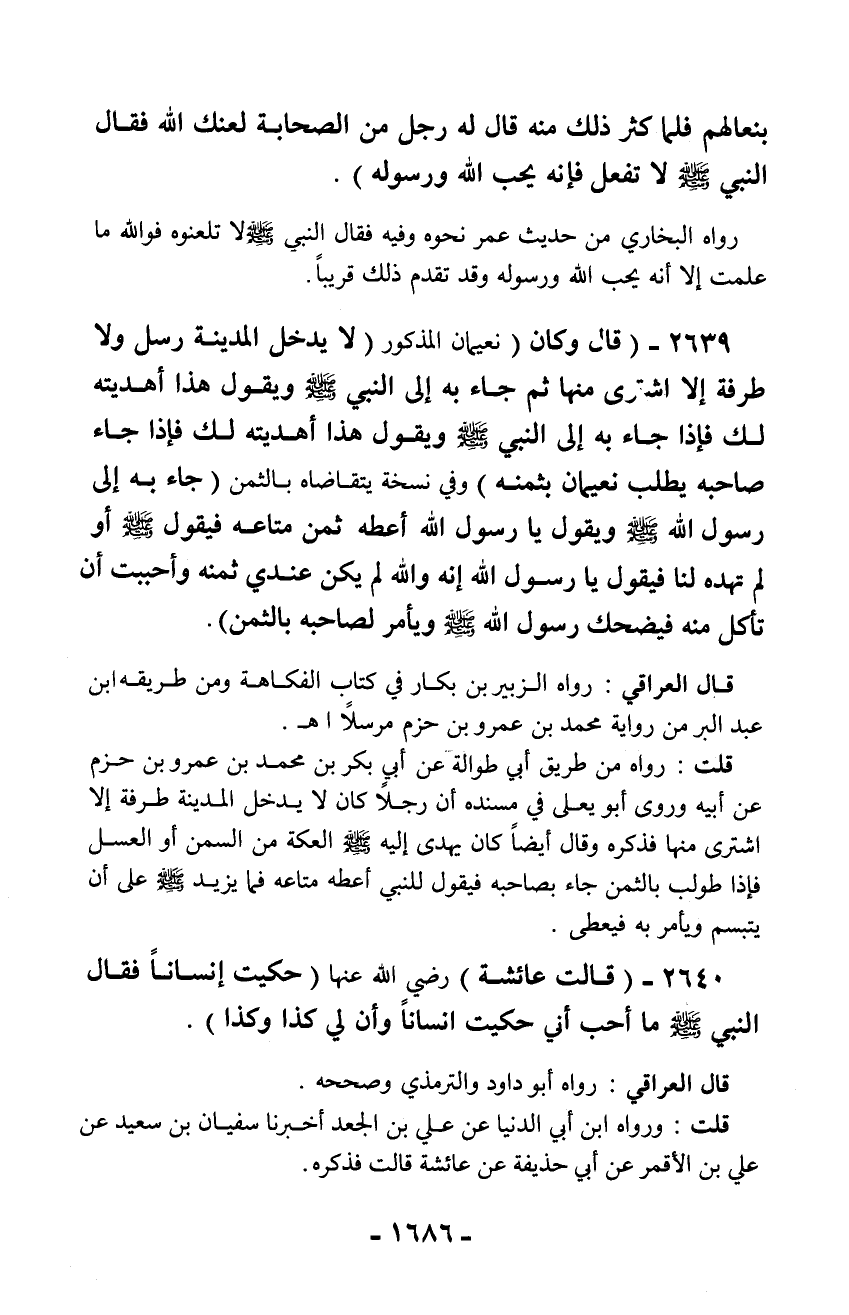 بنعالهم فلما كثر ذلك منه قال له رجل من الصحابة لعنك الله فقال
النبي ﷺ لا تفعل فإنه يحب الله ورسوله ) .
رواه البخاري من حديث عمر نحوه وفيه فقال النبي ﷺ لا تلعنوه فوالله ما
علمت إلا أنه يحب الله ورسوله وقد تقدم ذلك قريباً.
٢٦٣٩ ـ ( قال وكان ( نعيمان المذكور ( لا يدخل المدينة رسل ولا
طرفة إلا اشترى منها ثم جاء به إلى النبي ﷺ ويقول هذا أهديته
لك فإذا جاء به إلى النبي ﷺ ويقول هذا أهديته لك فإذا جاء
صاحبه يطلب نعيمان بثمنه ) وفي نسخة يتقاضاه بالثمن ( جاء به إلى
رسول الله ﷺ ويقول يا رسول الله أعطه ثمن متاعه فيقول ﷺ أو
لم تهده لنا فيقول يا رسول الله إنه والله لم يكن عندي ثمنه وأحببت أن
تأكل منه فيضحك رسول الله ﷺ ويأمر لصاحبه بالثمن).
قال العراقي : رواه الزبير بن بكار في كتاب الفكاهة ومن طريقه ابن
عبد البر من رواية محمد بن عمرو بن حزم مرسلاً ا هـ .
قلت : رواه من طريق أبي طوالة عن أبي بكر بن محمد بن عمرو بن حزم
عن أبيه وروى أبو يعلى في مسنده أن رجلاً كان لا يدخل المدينة طرفة إلا
اشترى منها فذكره وقال أيضاً كان يهدى إليه ﷺ العكة من السمن أو العسل
فإذا طولب بالثمن جاء بصاحبه فيقول للنبي أعطه متاعه فما يزيد ﷺ على أن
يتبسم ويأمر به فيعطى .
٢٦٤٠ ـ ( قالت عائشة ) رضي الله عنها ( حكيت إنساناً فقال
النبي ﷺ ما أحب أني حكيت انساناً وأن لي كذا وكذا ) .
قال العراقي : رواه أبو داود والترمذي وصححه .
قلت : ورواه ابن أبي الدنيا عن علي بن الجعد أخبرنا سفيان بن سعيد عن
علي بن الأقمر عن أبي حذيفة عن عائشة قالت فذكره.
ـ ١٦٨٦ ـ